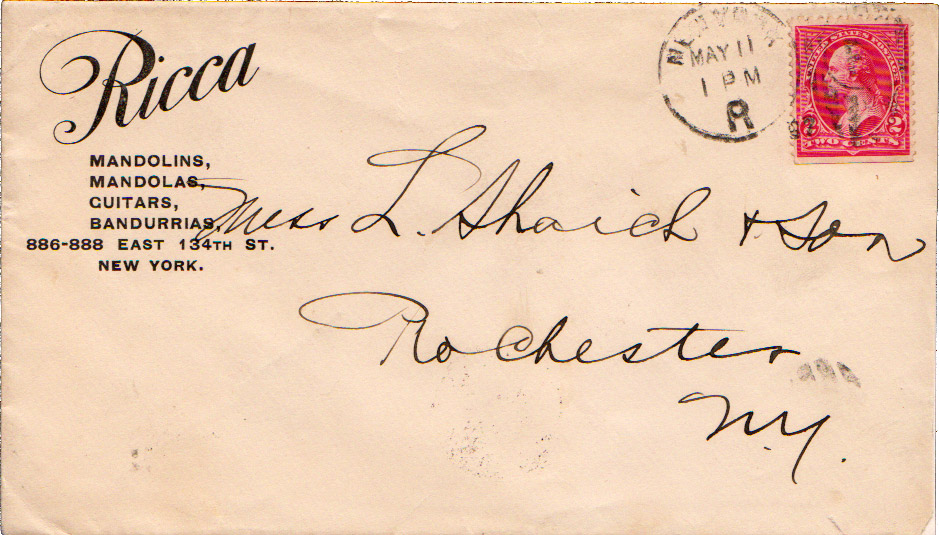 Ricca
MANDOLINS,
MANDOLAS,
GUITARS,
BANDURRIAS.
886-888 EAST 134TH ST.
NEW YORK.
NEW YORK
MAY 11
1 PM
R
UNITED STATES POSTAGE
2 2
TWO CENTS
Mess L. Shaich & Son
Rochester
N.Y.